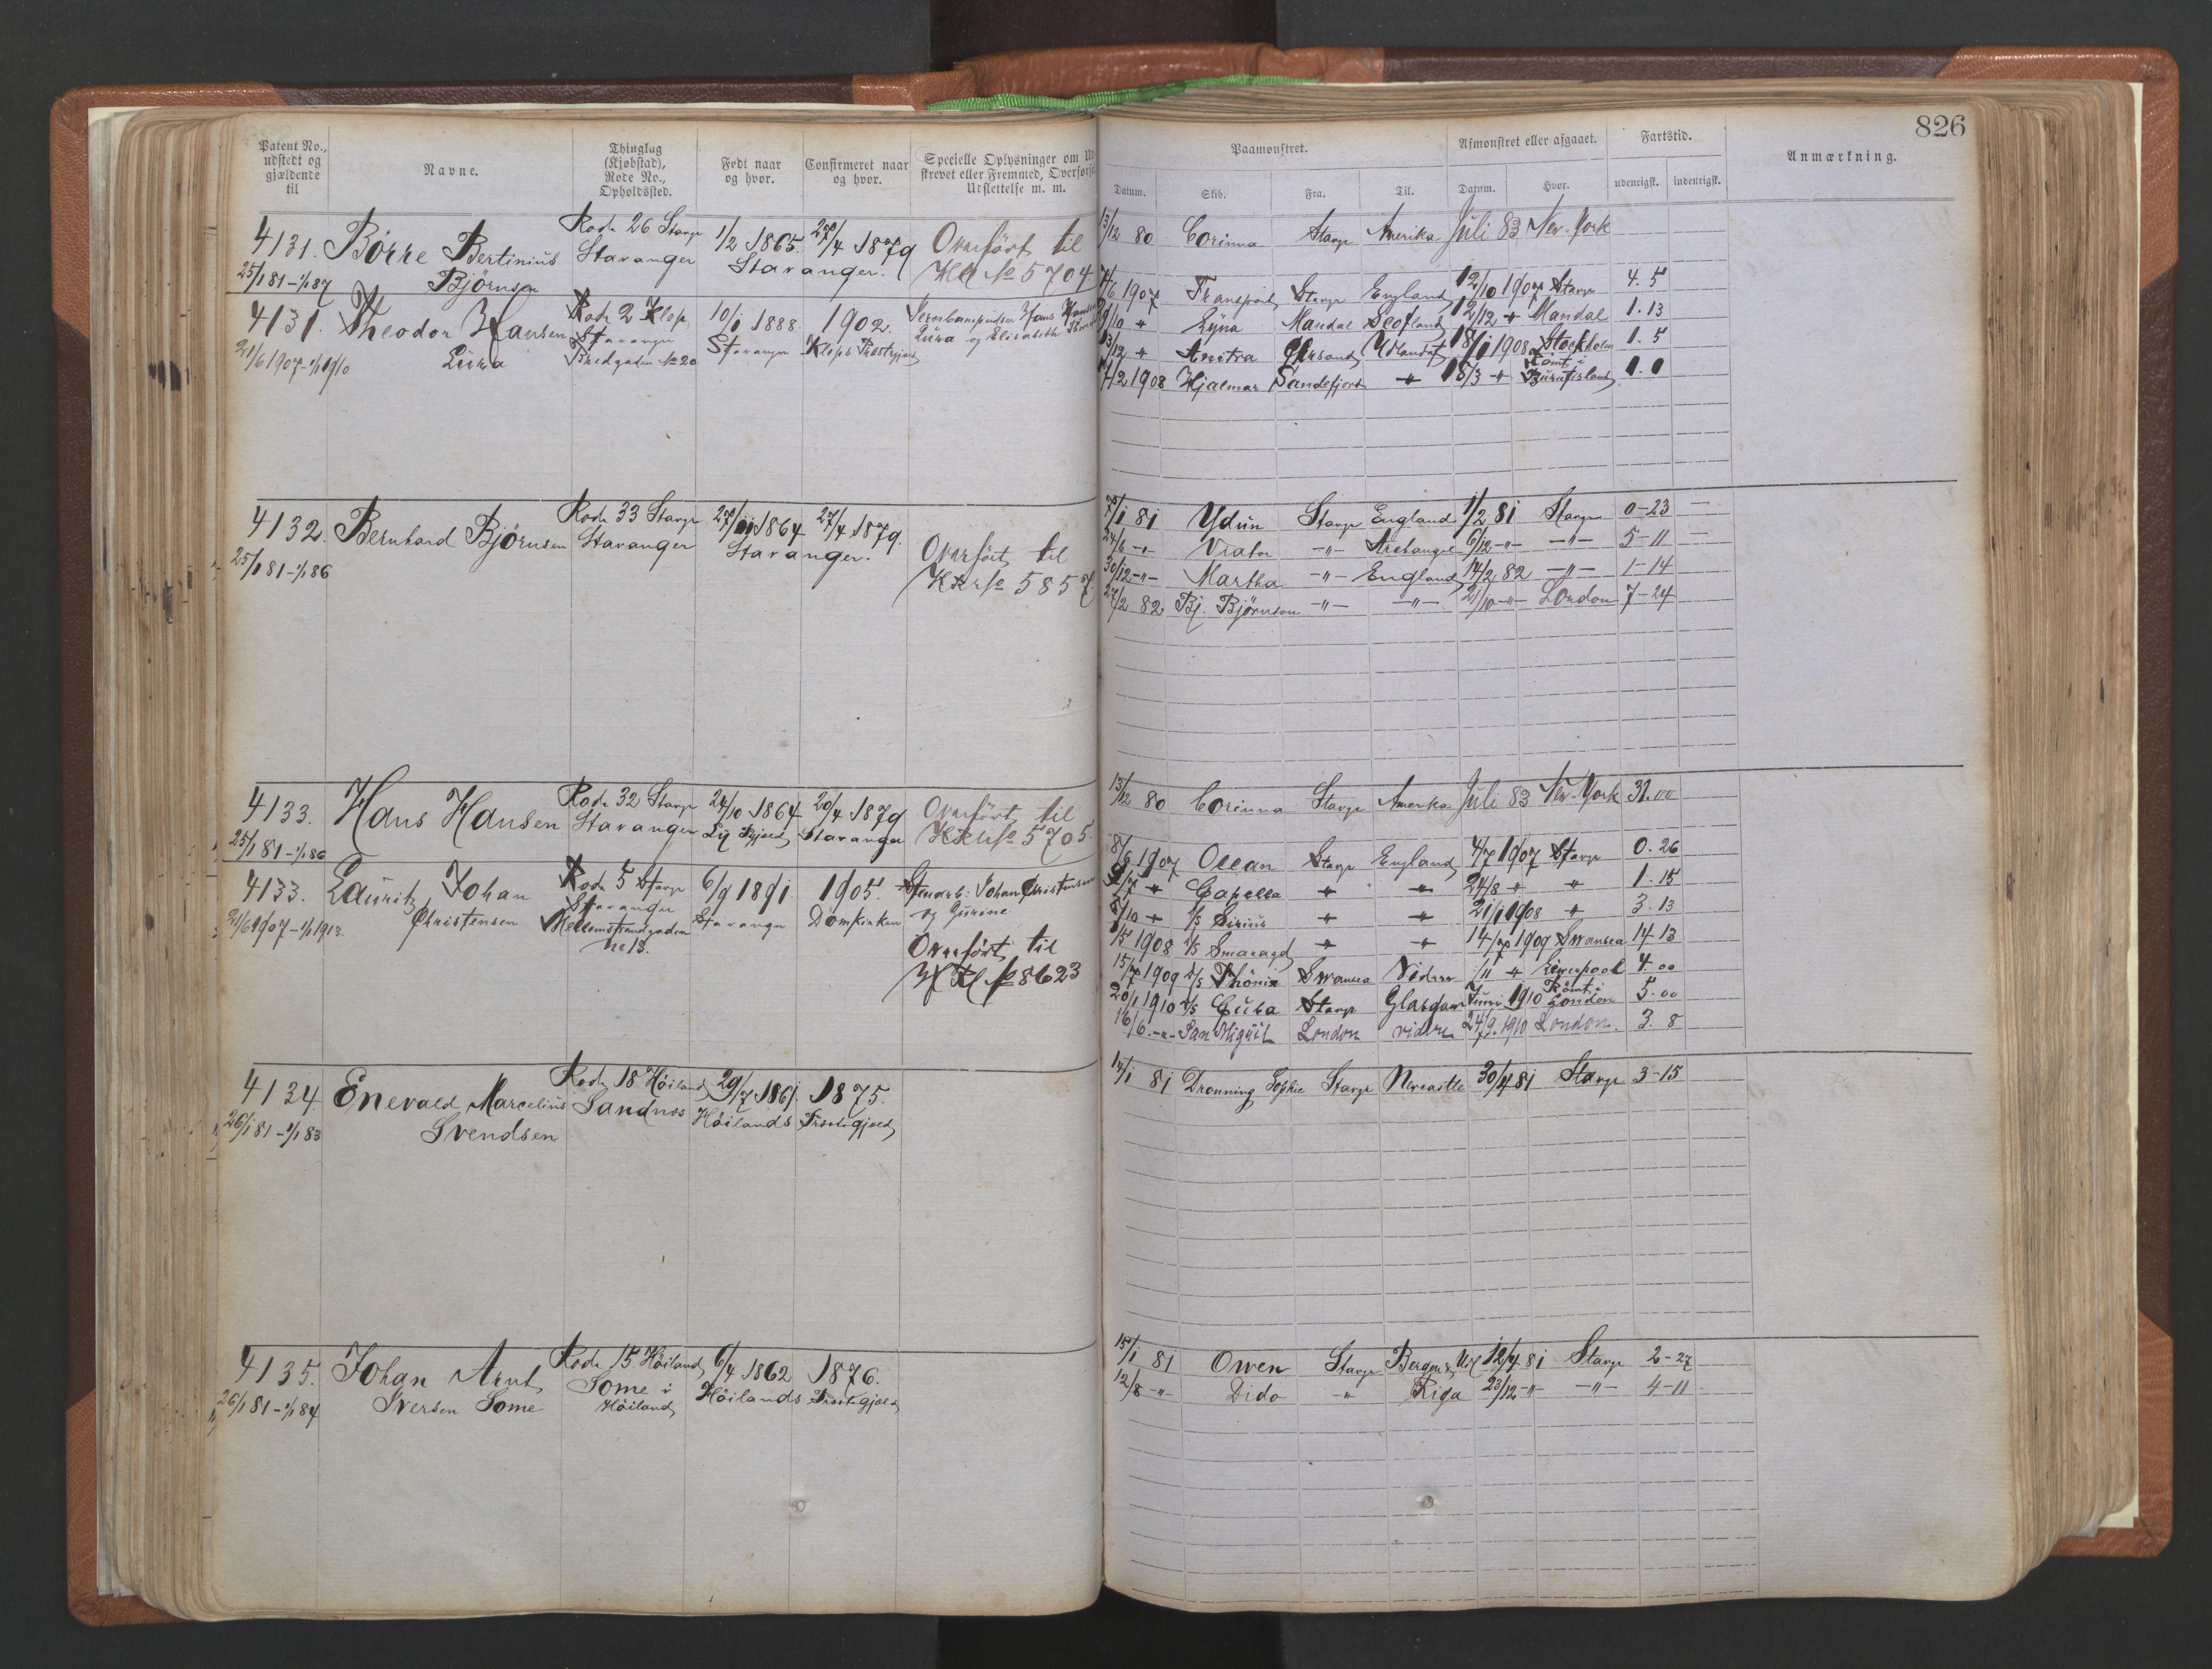 826
Patent No., udstedt og gjældende til
Navne.
Thinglag (Kjøbstad), Rode No., Opholdssted.
Født naar og hvor.
Confirmeret naar og hvor.
Specielle Oplysninger om
Udslettelse m. m.
Paamønstret.
Afmønstret eller afgaaet.
Fartstid.
Anmærkning.
Datum. Skib. Fra. Til. Datum. Hvor. udenrigsk. indenrigsk.
4131. Børre Bertinius Rode 26 Stavgr 1/2 1865. 27/4 1879 Overført til
25/1 81 - 1/1 87 Bjørnsen Stavanger Stavanger. No 5704
13/12 80 Corinna Stavgr Amerika Juli 83 New-York
4131. Theodor Hansen Rode 2 Klep 10/1 1888. 1902.
21/6 1907 - 1/1 1910 Stavanger Stavanger Kleps Præstegjæld
Bredgaden No 20
7/6 1907 Transport Stavgr England 12/10 1907 Stavgr 4. 5
29/10 " Mandal Scotland 12/12 " Mandal 1. 13
13/12 " Anitra Udlandet 18/1 1908 Stockholm 1. 5
7/2 1908 Hjalmar Sandefjord " 8/3 " Rømt i Buntisland 1. 1
4132. Bernhard Bjørnsen Rode 33 Stavgr 27/11 1864 27/4 1879.
25/1 81 - 1/1 86 Stavanger Stavanger.
Overført til
No 5857
7/1 81 Ydun Stavgr England 1/2 81 Stavgr 0-23 —
24/6 -"- Viator -"- Archangel 6/12 -"- -"- 5-11 —
30/12 -"- Martha -"- England 14/2 82 -"- 1-14
27/2 82 Bj. Bjørnson -"- -"- 21/10 -"- London 7-24
4133. Hans Hansen Rode 32 Stavgr 24/10 1864 20/4 1879 Overført til
25/1 81 - 1/1 86 Stavanger Stavanger No 5705
13/12 80 Corinna Stavgr Amerika Juli 83 New-York 31.00
4133. Lauritz Johan Rode 5 Stavgr 6/9 1891 1905. Johan Christensen
21/6 1907 - 1/1 1913. Christensen Stavanger Stavanger Domkirken og Gurine
No 13.
Overført til
No 8623
8/6 1907 Ocean Stavgr England 4/7 1907 Stavgr 0. 26
9/7 " Capella " " 24/8 " " 1. 15
8/10 " S/S Sirius " " 21/1 1908 " 3. 13
1/5 1908 S/S Smaragd " " 14/7 1909 Swansea 14 13
15/7 1909 S/S Phønix Swansea Videre /11 " Liverpool 4. 00
20/1 1910 S/S Cuba Stavgr Glasgow Juni 1910 Rømt i London 5. 00
16/6 -"- San Miguel London videre 24/9. 1910 London. 3. 8
4134. Enevald Marcelius Rode 18 Høiland 29/7 1861. 1875.
26/1 81 - 1/1 83 Svendsen Sandnes Høilands Præstegjæld
14/1 81 Dronning Sophie Stavgr Newcastle 30/4 81 Stavgr 3-15
4135. Johan Arnt Rode 15 Høiland 6/4 1862 1876.
26/1 81 - 1/1 84 Iversen Some Some i Høiland Høilands Præstegjæld
15/1 81 Owen Stavgr 12/4 81 Stavgr 2-27
12/8 -"- Dido " Riga 23/12 -"- -"- 4-11